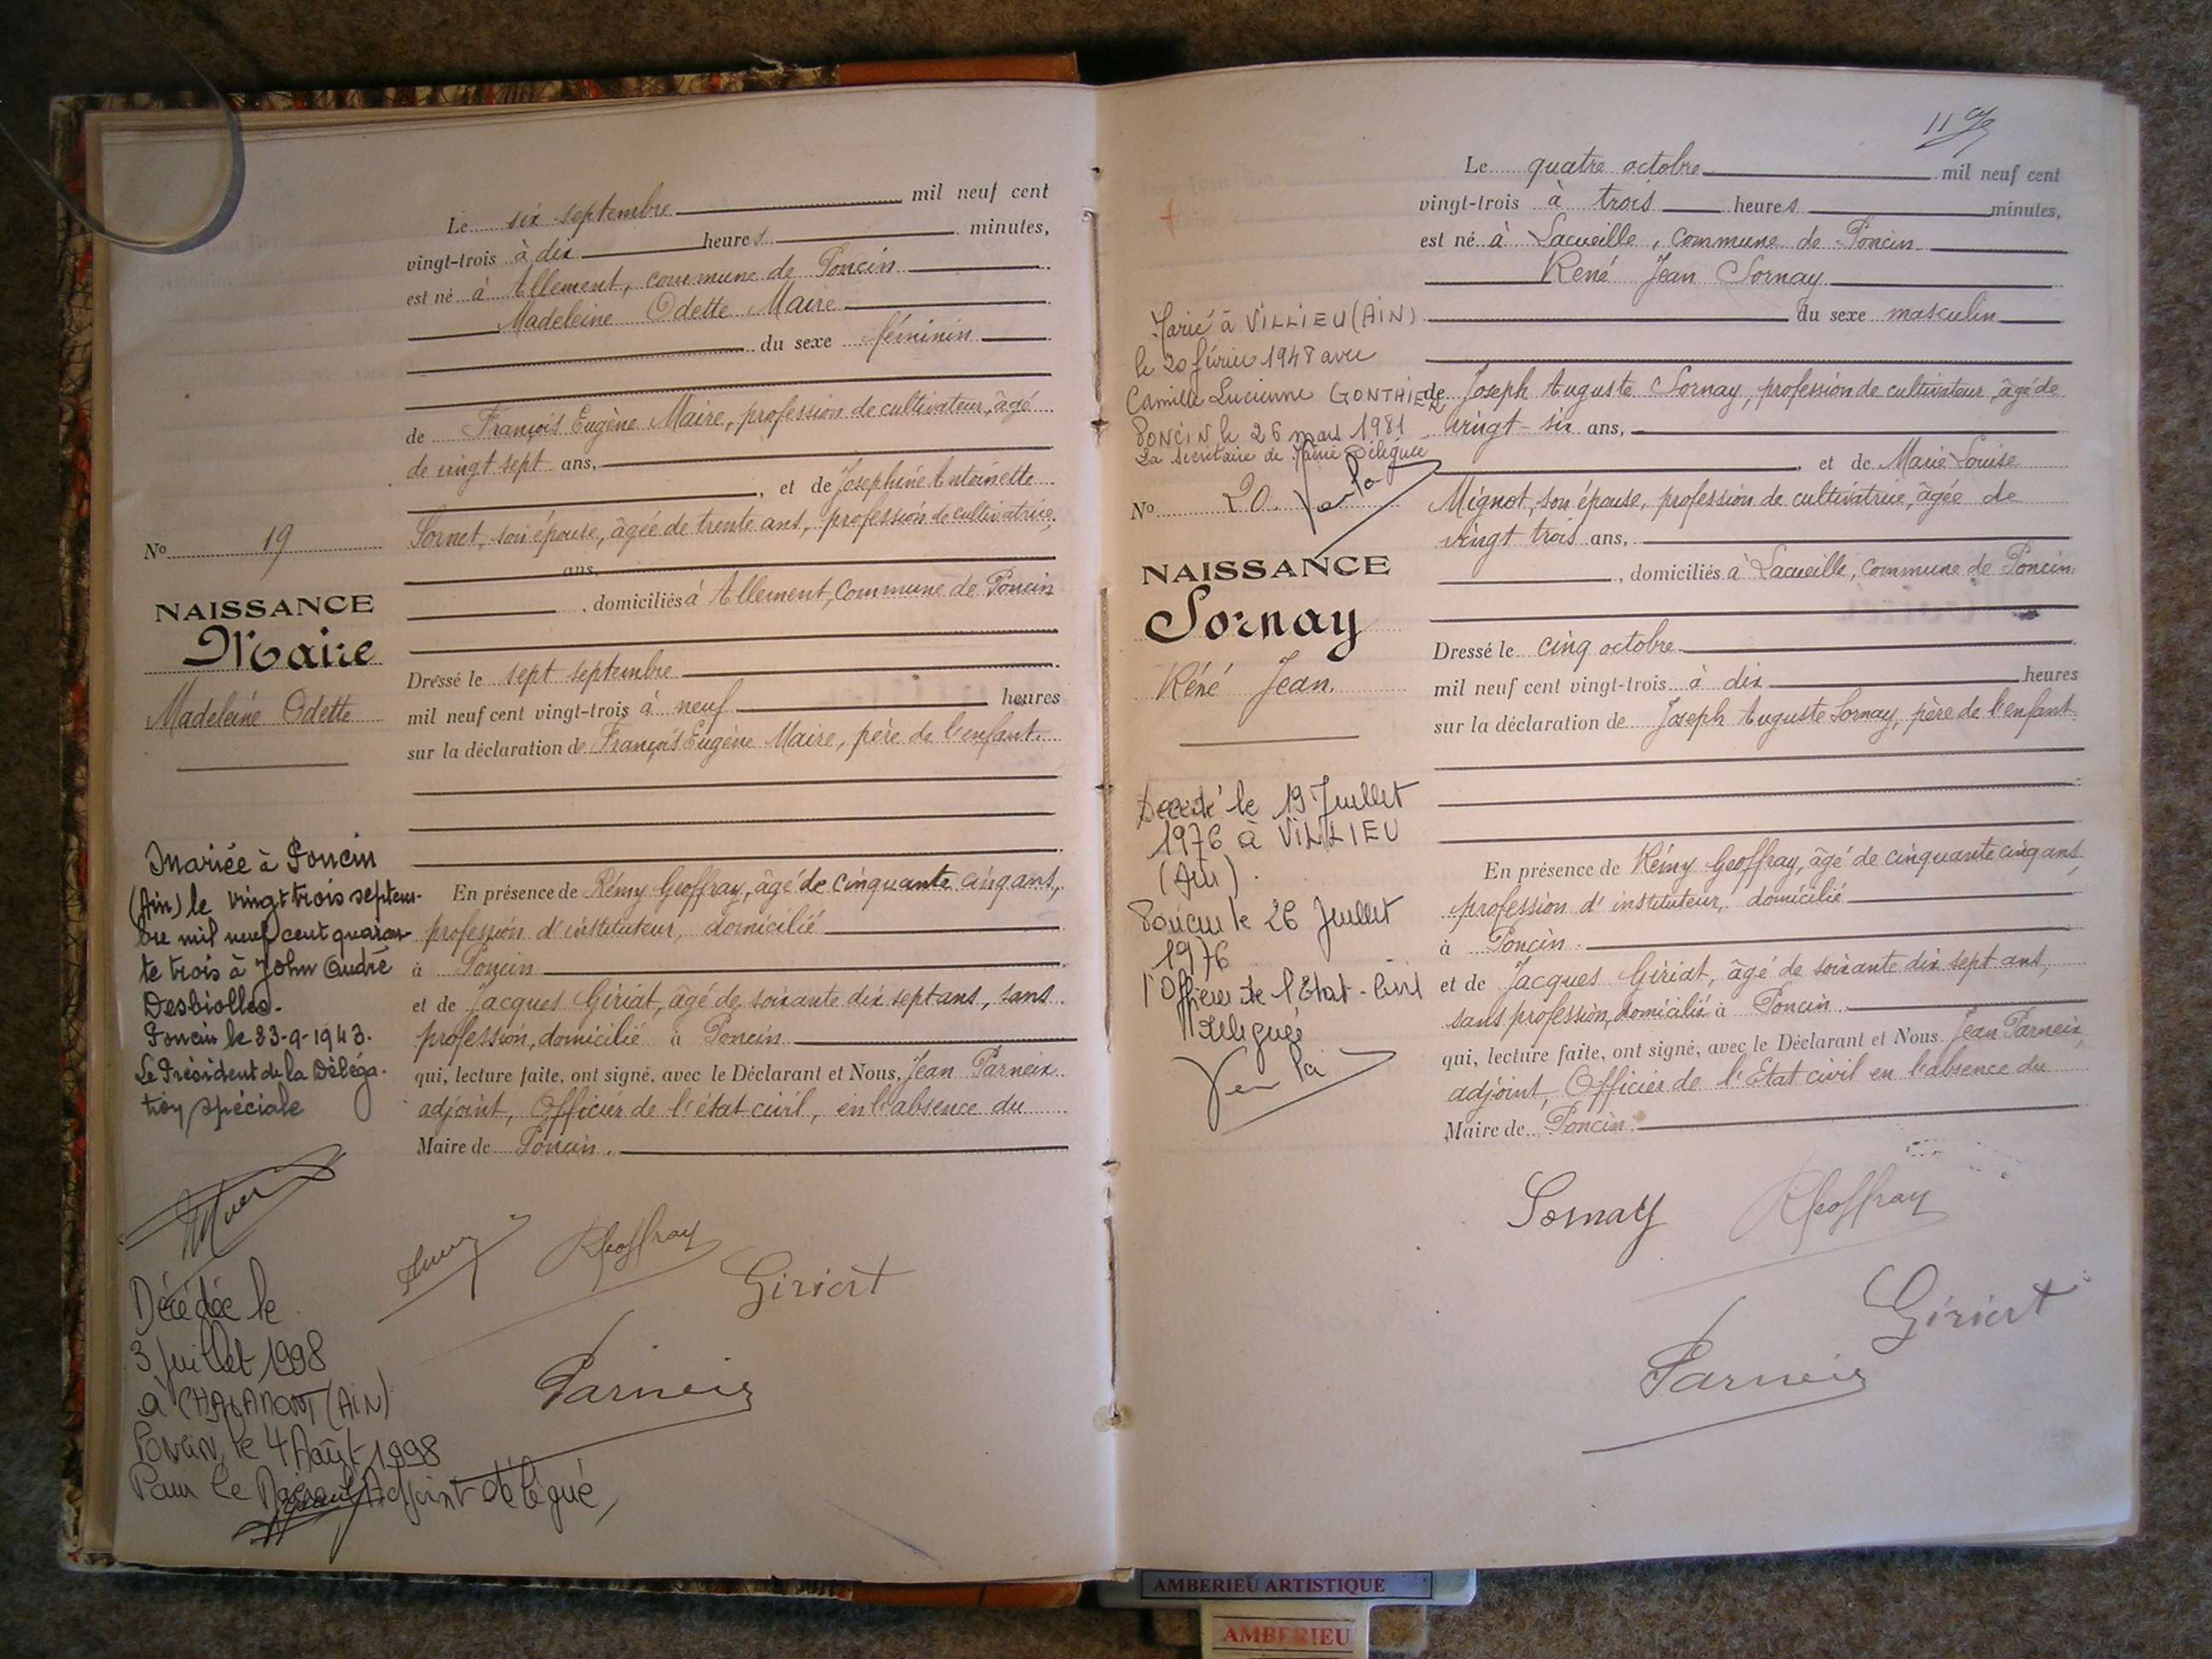 Le six septembre mil neuf cent
vingt-trois à dix heures minutes,
est né à Allement, commune de Poncin
Madeleine Odette Maire
du sexe féminin
de François Eugène Maire, profession de cultivateur, âgé
de vingt sept ans,
, et de Joséphine Antoinette
Sornet, son épouse, âgée de trente ans, profession de cultivatrice,
ans,
, domiciliés à Allement, commune de Poncin
Dressé le sept septembre
mil neuf cent vingt-trois à neuf heures
sur la déclaration de François Eugène Maire, père de l'enfant.
En présence de Rémy Geoffray, âgé de cinquante cinq ans,
profession d'instituteur, domicilié
à Poncin
et de Jacques Giriat, âgé de soixante dix sept ans, sans
profession, domicilié à Poncin
qui, lecture faite, ont signé, avec le Déclarant et Nous, Jean Parneix
adjoint, Officier de l'état civil, en l'absence du
Maire de Poncin.
No 19
NAISSANCE
Maire
Madeleine Odette
Mariée à Poncin
(Ain) le vingt trois septem-
bre mil neuf cent quaran
te trois à John André
Desbiolles.
Poncin le 23-9-1943.
Le Président de la Déléga-
tion spéciale
Décédée le
3 juillet 1998
à CHALAMONT (AIN)
Poncin, le 4 Août 1998
Pour le Maire Adjoint délégué,
RGeoffray
Giriat
Parneix
11
Le quatre octobre mil neuf cent
vingt-trois à trois heures minutes,
est né à Lacueille, commune de Poncin
René Jean Sornay
du sexe masculin
de Joseph Auguste Sornay, profession de cultivateur, âgé de
vingt-six ans,
, et de Marie Louise
Mignot, son épouse, profession de cultivatrice, âgée de
vingt trois ans,
, domiciliés à Lacueille, commune de Poncin.
Dressé le cinq octobre
mil neuf cent vingt-trois à dix heures
sur la déclaration de Joseph Auguste Sornay, père de l'enfant
En présence de Rémy Geoffray, âgé de cinquante cinq ans,
profession d'instituteur, domicilié
à Poncin.
et de Jacques Giriat, âgé de soixante dix sept ans,
sans profession, domicilié à Poncin
qui, lecture faite, ont signé, avec le Déclarant et Nous Jean Parneix,
adjoint, Officier de l'Etat civil en l'absence du
Maire de Poncin.
Marié à VILLIEU (AIN)
le 20 février 1948 avec
Camille Lucienne GONTHIER
PONCIN le 26 mars 1981
La Secrétaire de Mairie Déléguée
No 20.
NAISSANCE
Sornay
Réné Jean.
Décédé le 19 Juillet
1976 à VILLIEU
(Ain).
Poncin le 26 Juillet
1976
l'Officier de l'Etat-Civil
Délégué
Sornay
RGeoffray
Giriat
Parneix
AMBERIEU ARTISTIQUE
AMBERIEU